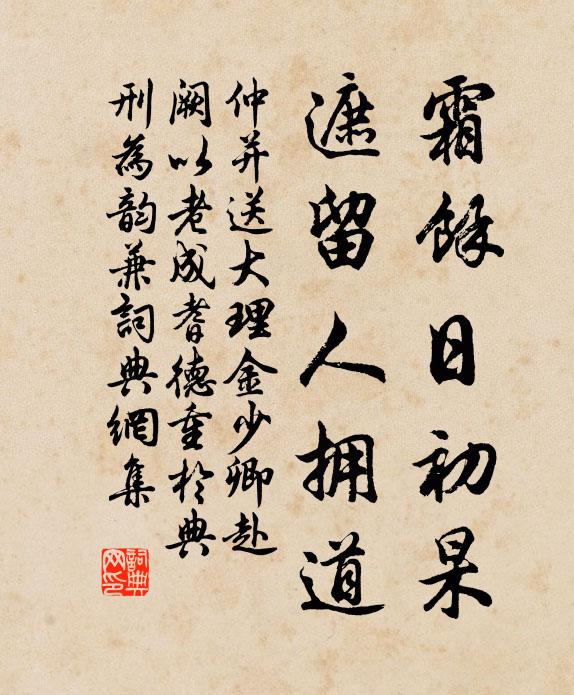 霜餘日初杲
遮留人拥道
仲并送大理金少卿赴
阙以老成耆德重於典
刑為韵兼詞典網集
詞典
网印